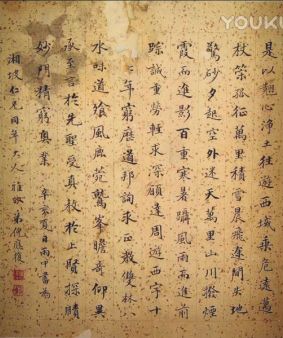 YOUKU
是以翹心淨土往遊西域乘危遠邁
杖策孤征萬里積雪晨飛途間失地
驚砂夕起空外迷天萬里山川撥煙
霞而進影百重寒暑躡風雨而進前
蹤誠重勞輕求深願達周遊西宇十
年窮歷道邦詢求正教雙林八
水味道飡風鹿菀鷲峯瞻奇仰異
承至言於先聖受真教於上賢探賾
妙門精窮奧業 辛亥夏日雨中書為
湘坡仁兄同年大人雅政 弟倪應復